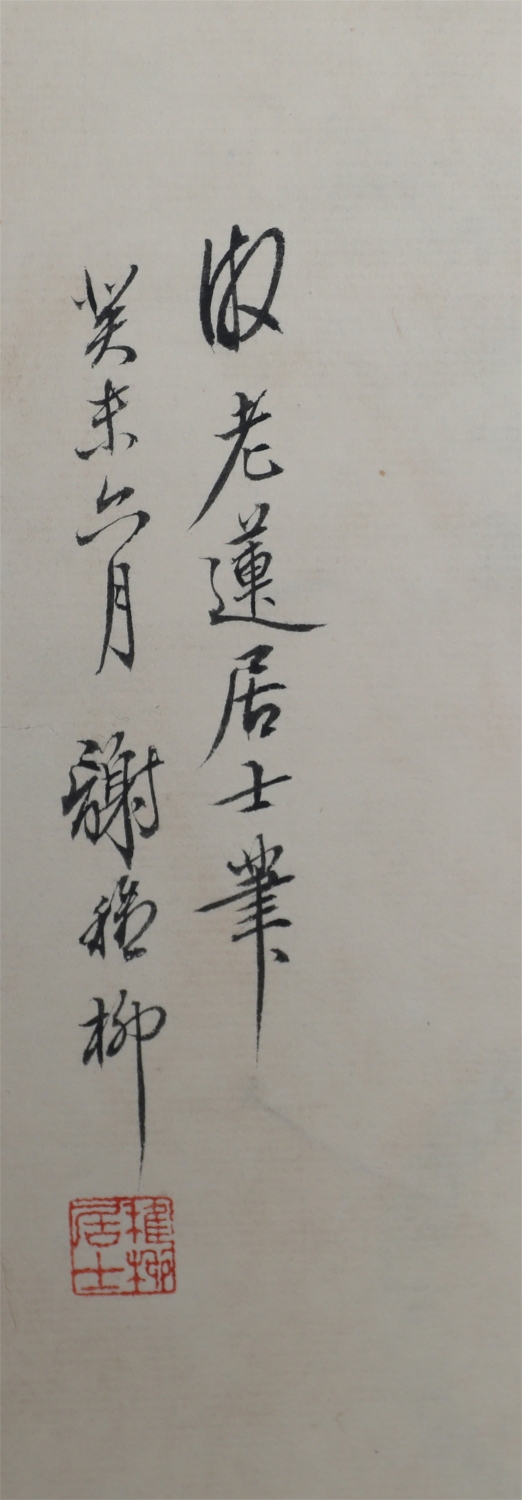 倣老蓮居士筆
癸未六月 謝稚柳
稚柳居士